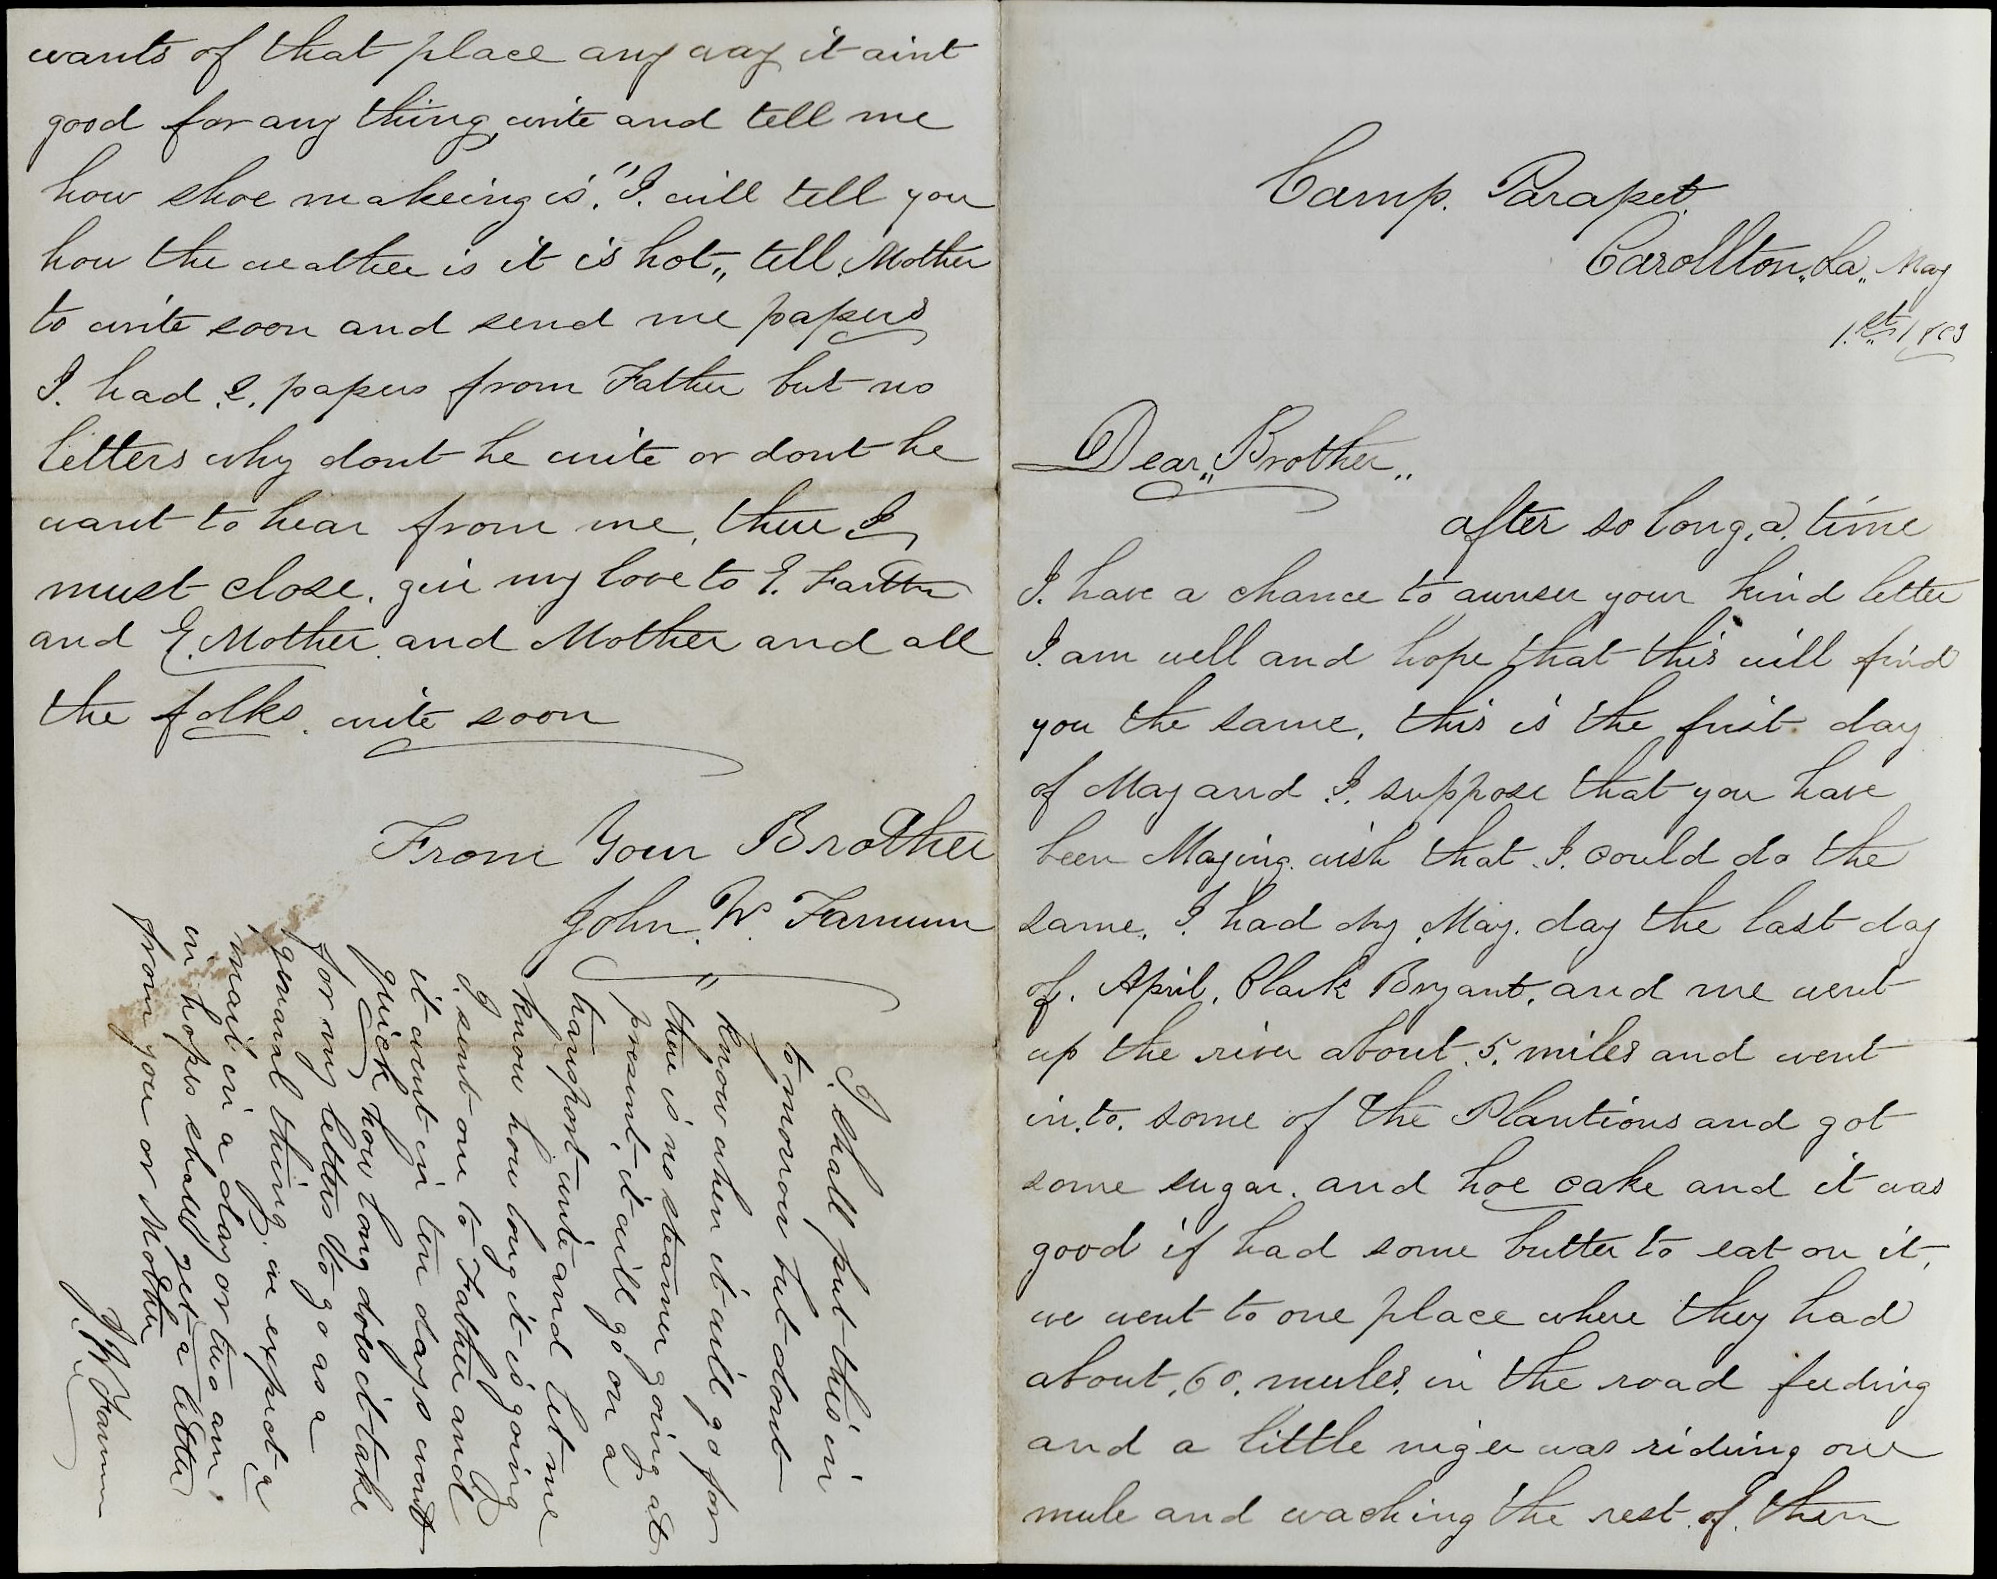 Camp. Parapet.
Carollton,, La,, May
1.st,, 1863
Dear,, Brother,,
after so long, a, time
I. have a chance to aunser your kind letter
I. am well and hope that this will find
you the same, this is the first day
of May and I. suppose that you have
been Maying. wish that I. could do the
same, I. had my May. day the last day
of. April, Clark Bryant, and me went
up the river about .5. miles and went
in.to. some of the Plantions and got
some sugar. and hoe cake and it was
good if had some butter to eat on it,
we went to one place where they had
about .60. mules. in the road feeding
and a little niger was riding one
mule and waching the rest. of. them
wants of that place any way it aint
good for any thing, write and tell me
how shoe makeing is." I. will tell you
how the weather is it is hot,, tell. Mother
to write soon and send me papers
I. had .2. papers from Father but no
letters why dont he write or dont he
want to hear from me, there I
must close. give my love to G. Farther
and G. Mother. and Mother and all
the folks. write soon
From Your Brother
John. W. Farnum
I shall put this in
to morrow but dont
know when it will go for
there is no steamer going at
present, it will go on a
transport write and let me
know how long it is going
I. sent one to Father and
it went in ten days went
quick how long does it take
for my letters to go as a
genaral thing. we expect a
mail in a day or two am
in hopes shall get a letter
from you or Mother
J. W. Farnum